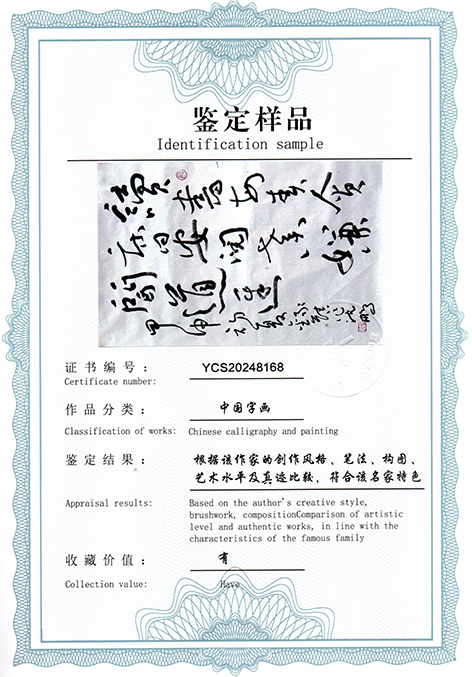 鉴定样品
Identification sample
证书编号： YCS20248168
Certificate number:
作品分类： 中国字画
Classification of works: Chinese calligraphy and painting
鉴定结果： 根据该作家的创作风格、笔法、构图、
艺术水平及真迹比较、符合该名家特色
Appraisal results: Based on the author's creative style,
brushwork, compositionComparison of artistic
level and authentic works, in line with the
characteristics of the famous family
收藏价值： 有
Collection value: Have